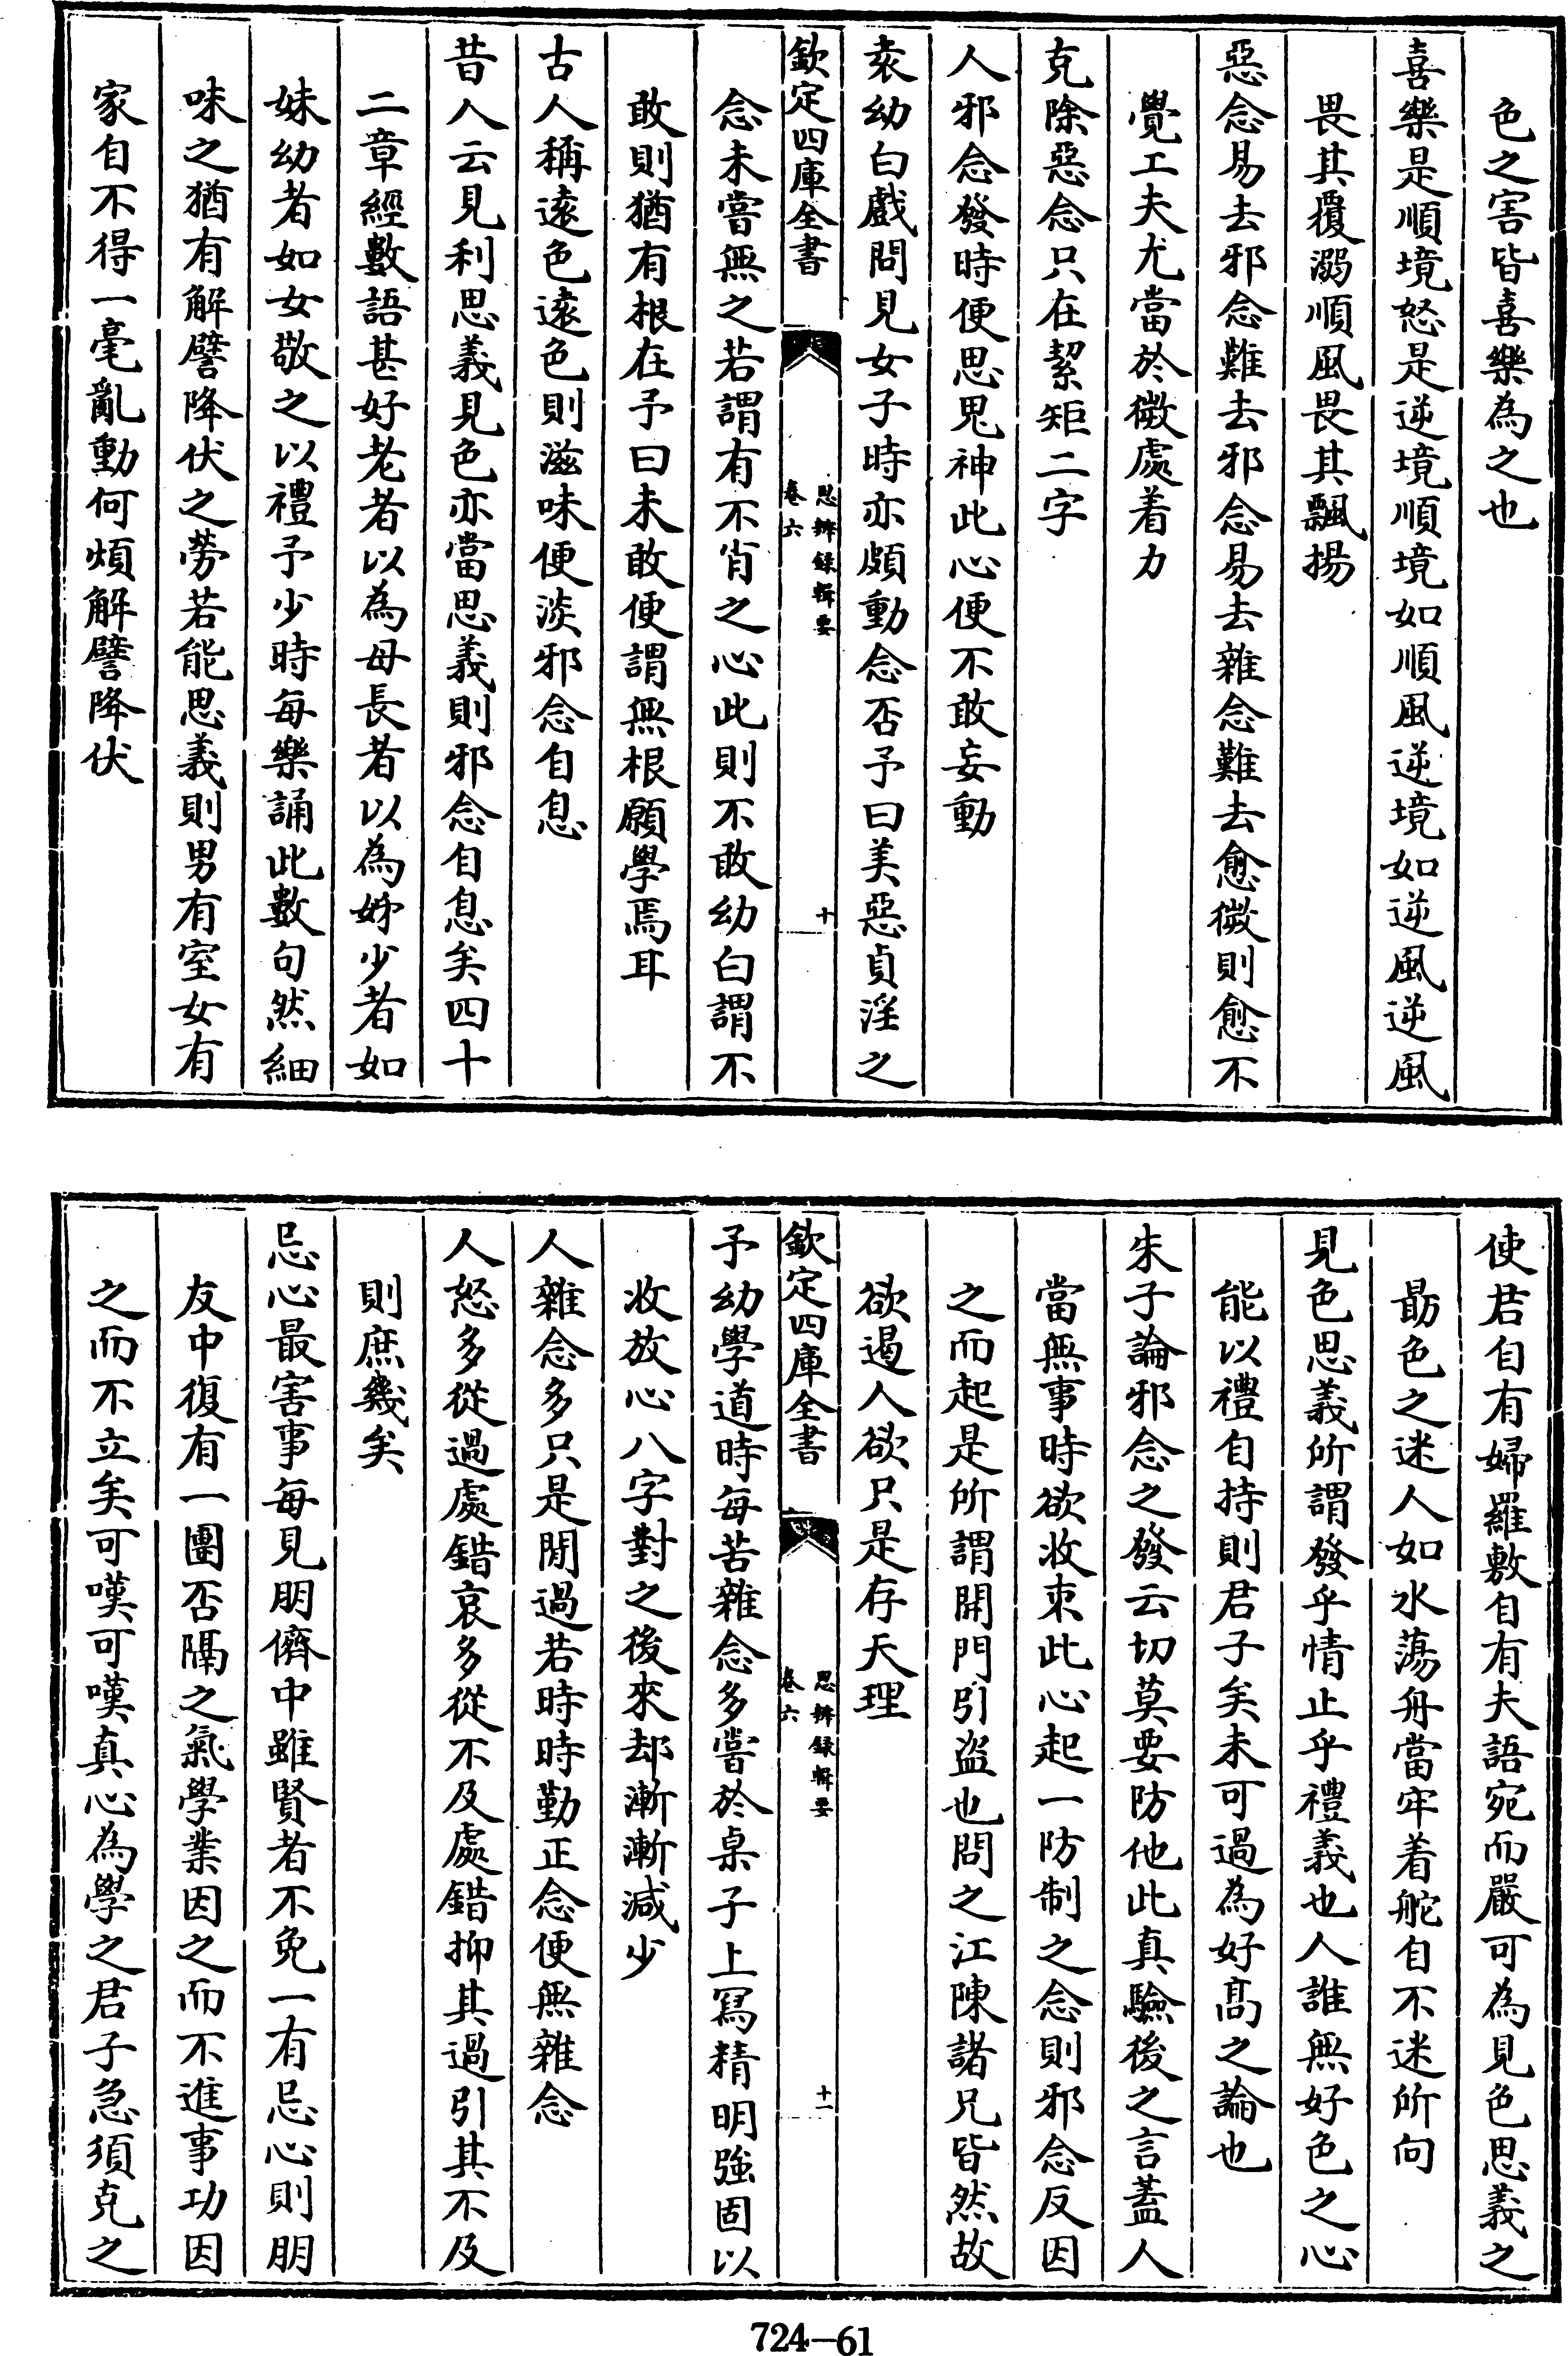 色之害皆喜樂為之也
喜樂是順境怒是逆境順境如順風逆境如逆風逆風
畏其覆溺順風畏其飄揚
惡念易去邪念難去邪念易去雜念難去愈微則愈不
覺工夫尤當於微處着力
克除惡念只在絜矩二字
人邪念發時便思鬼神此心便不敢妄動
袁幼白戲問見女子時亦頗動念否予曰美惡貞淫之
欽定四庫全書
思辨錄輯要
卷六
十
念未嘗無之若謂有不肖之心此則不敢幼白謂不
敢則猶有根在予曰未敢便謂無根願學焉耳
古人稱遠色遠色則滋味便淡邪念自息
昔人云見利思義見色亦當思義則邪念自息矣四十
二章經數語甚好老者以為母長者以為姊少者如
妹幼者如女敬之以禮予少時每樂誦此數句然細
味之猶有解譬降伏之勞若能思義則男有室女有
家自不得一毫亂動何煩解譬降伏
使君自有婦羅敷自有夫語宛而嚴可為見色思義之
勗色之迷人如水蕩舟當牢着舵自不迷所向
見色思義所謂發乎情止乎禮義也人誰無好色之心
能以禮自持則君子矣未可過為好高之論也
朱子論邪念之發云切莫要防他此真驗後之言蓋人
當無事時欲收束此心起一防制之念則邪念反因
之而起是所謂開門引盜也問之江陳諸兄皆然故
欲遏人欲只是存天理
欽定四庫全書
思辨錄輯要
卷六
十一
予幼學道時每苦雜念多嘗於桌子上寫精明強固以
收放心八字對之後來却漸漸減少
人雜念多只是閒過若時時勤正念便無雜念
人怒多從過處錯哀多從不及處錯抑其過引其不及
則庶幾矣
忌心最害事每見朋儕中雖賢者不免一有忌心則朋
友中復有一團否隔之氣學業因之而不進事功因
之而不立矣可嘆可嘆真心為學之君子急須克之
724—61